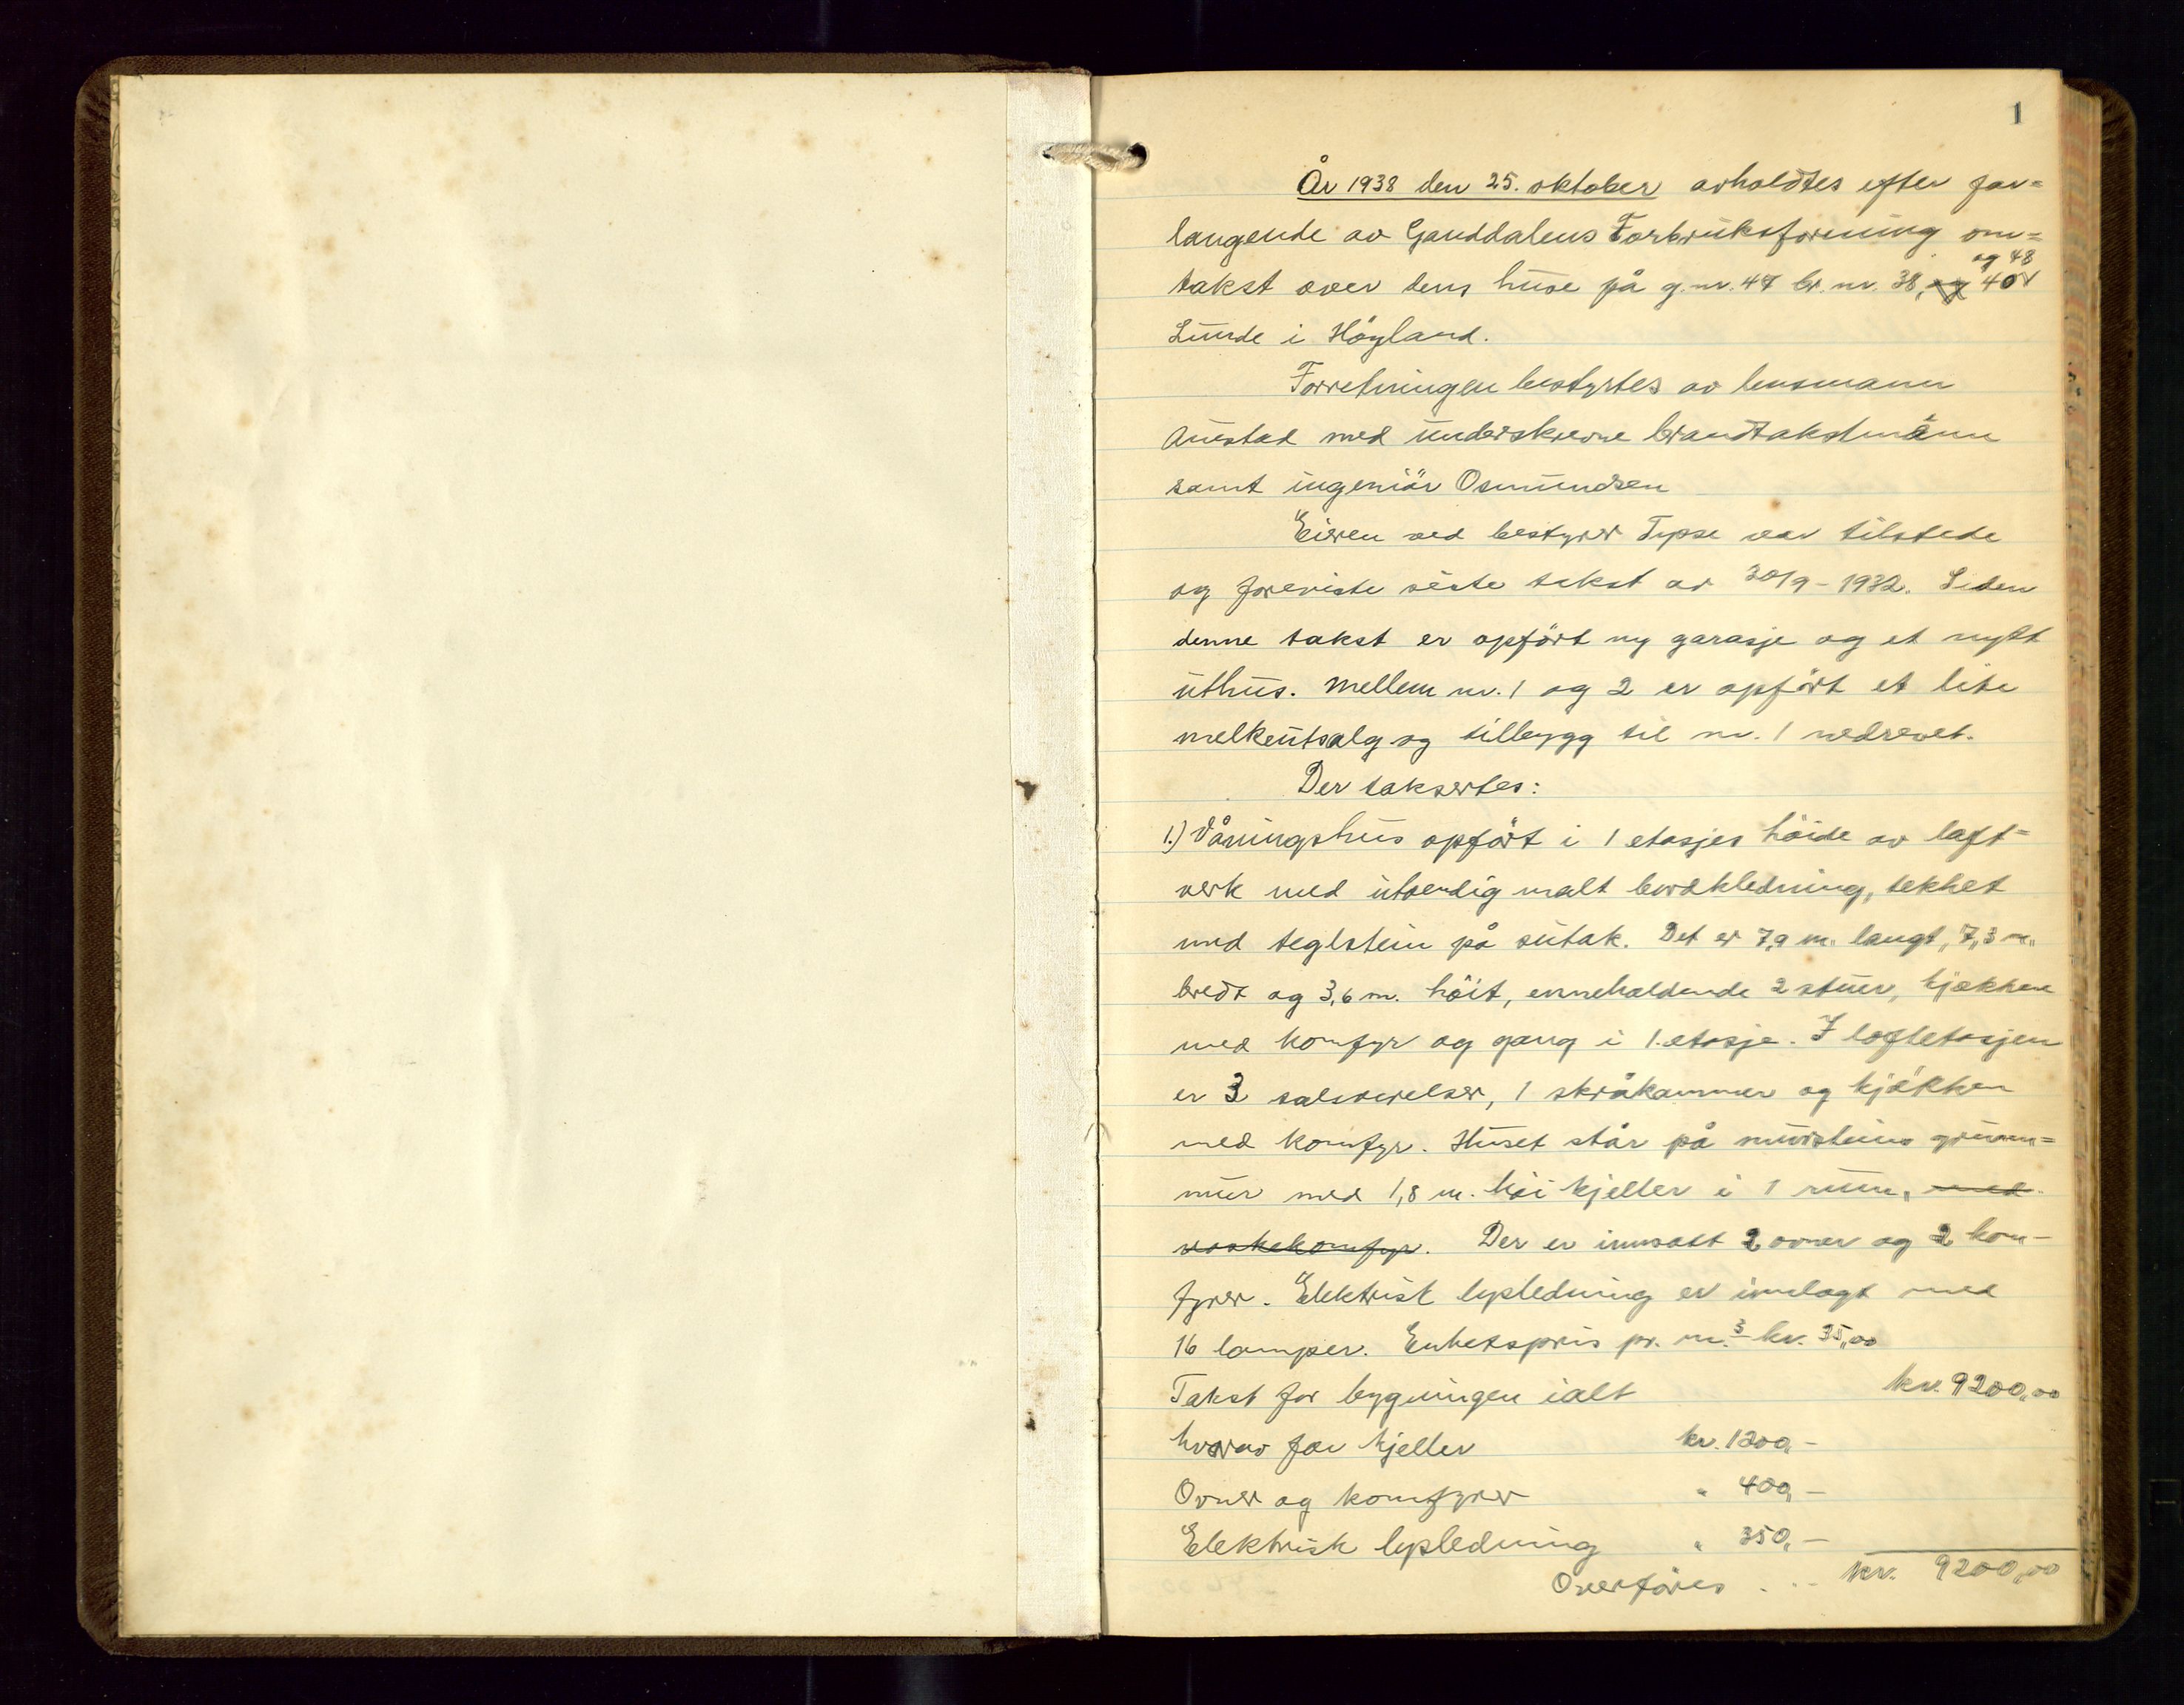 1
År 1938 den 25. oktober avholdtes efter for=
langende av Ganddalens Forbruksforening om=
og 48
takst over dens huse på g. nr. 47 br. nr. 38, og 40
Lunde i Höyland.
Forretningen bestyrtes av lensmann
Auestad med underskrevne brandtakstmänn
samt ingeniör Osmundsen
Eieren ved bestyrer Typse var tilstede
og foreviste siste takst av 30/9 - 1932. Siden
denne takst er opfört ny garasje og et nytt
uthus. Mellem nr. 1 og 2 er opfört et lite
melkeutsalg og tilbygg til nr. 1 nedrevet.
Der taksertes:
1.) Våningshus opfört i 1 etasjes höide av laft=
verk med utvendig malt bordkledning, tekket
med teglstein på sutak. Det er 7,9 m. langt, 7,3 m.
bredt og 3,6 m. höit, inneholdende 2 stuer, kjökken
med komfyr og gang i 1. etasje. I loftetasjen
er 3 salsverelser, 1 skråkammer og kjökken
med komfyr. Huset står på murstens grunn=
mur med 1,8 m. höi kjeller i 1 rum, med
vaskekomfyr. Der er innsatt 2 ovner og 2 kom-
fyrer. Elektrisk lysledning er innlagt med
16 lamper. Enhetspris pr. m.3 kr. 35,00
Takst for bygningen ialt kr. 9200,00
hvorav for kjeller kr. 1200,-
Ovner og komfyrer " 400,-
Elektrisk lysledning " 350,-
Overföres . . . kr. 9200,00